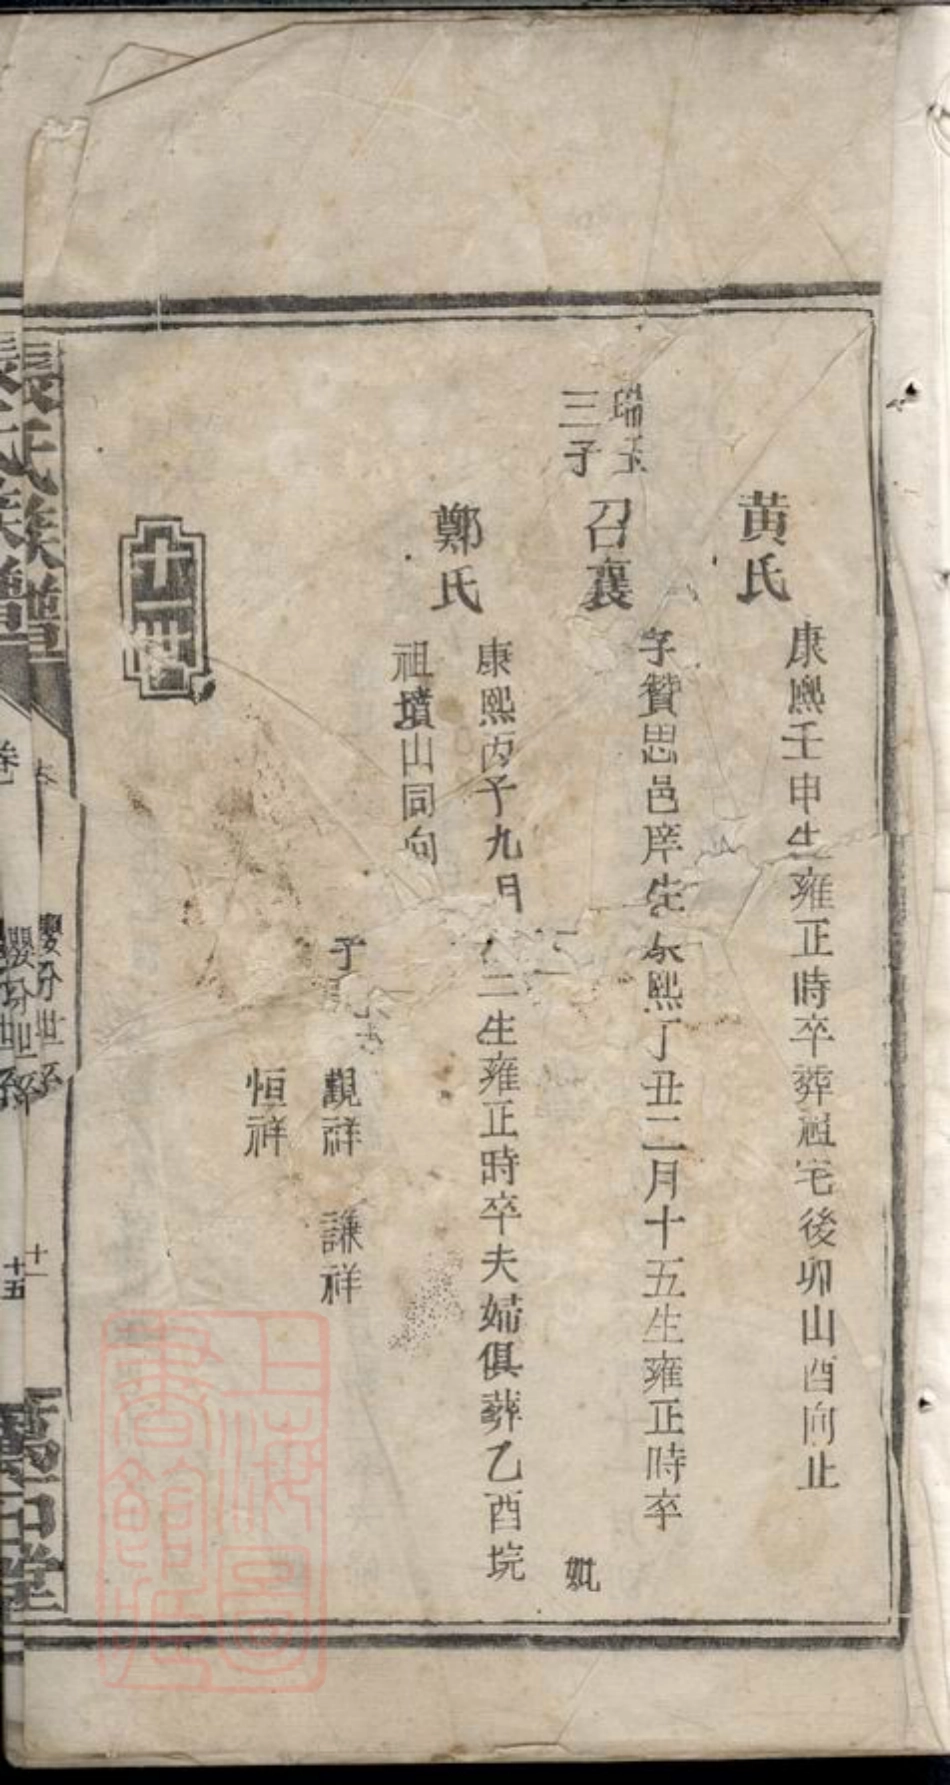 黄氏
康熙壬申生雍正時卒葬祖宅後卯山酉向止
瑞玉
三子
召襄
字贊思邑庠生康熙丁丑二月十五生雍正時卒
妣
鄭氏
康熙丙子九月 二生雍正時卒夫婦俱葬乙酉垸
祖墳山同向
子
觀祥 謙祥
恒祥
十四
張氏族譜
卷
嬰分世系
十一
十五
上海圖
書館藏